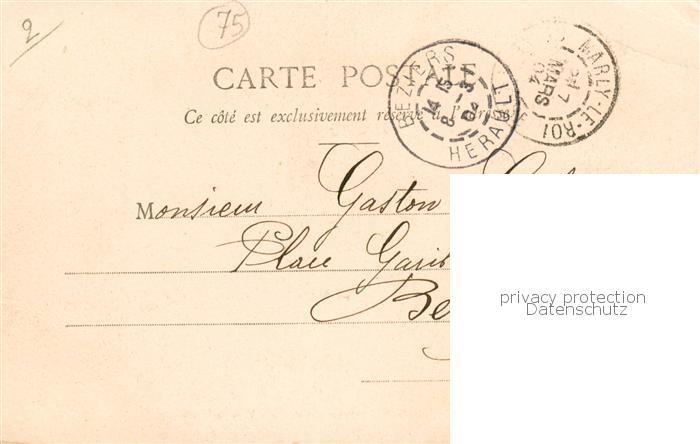 2
75
CARTE POSTALE
Ce côté est exclusivement réservé à l'adresse
BEZIERS
14 15
8 - 3
04
HERAULT
MARLY-LE-ROI
7
MARS
04
Monsieur Gaston
Place Garib
Be
privacy protection
Datenschutz